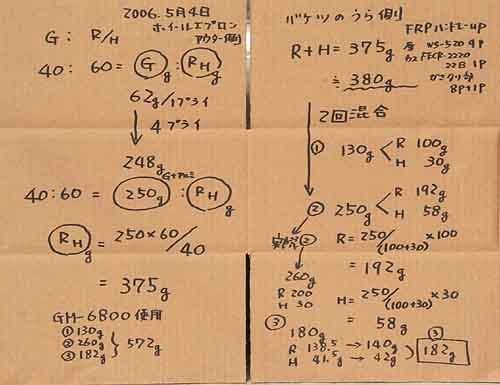 2006.5月4日
ホイールエプロン
アウター側
G: R/H
40:60 = G g : RH g
62g/1プライ
↓ 4プライ
248g
G+アルミ
40:60 = 250g : RH g
RH g = 250×60/40
= 375g
GM-6800 使用
① 130g
② 260g
③ 182g
} 572g
バケツのうら側
FRPハンドレーUP
R+H = 375g
≒ 380g
WS-520 4P
22日 1P
8P+1P
2回混合
① 130g < R 100g
H 30g
② 250g < R 192g
H 58g
実際②
R = 250/(100+30) ×100
= 192g
260g
R 200
H 30
H = 250/(100+30) ×30
= 58g
③ 180g
R 138.5g → 140g
H 41.5g → 42g
③ 182g